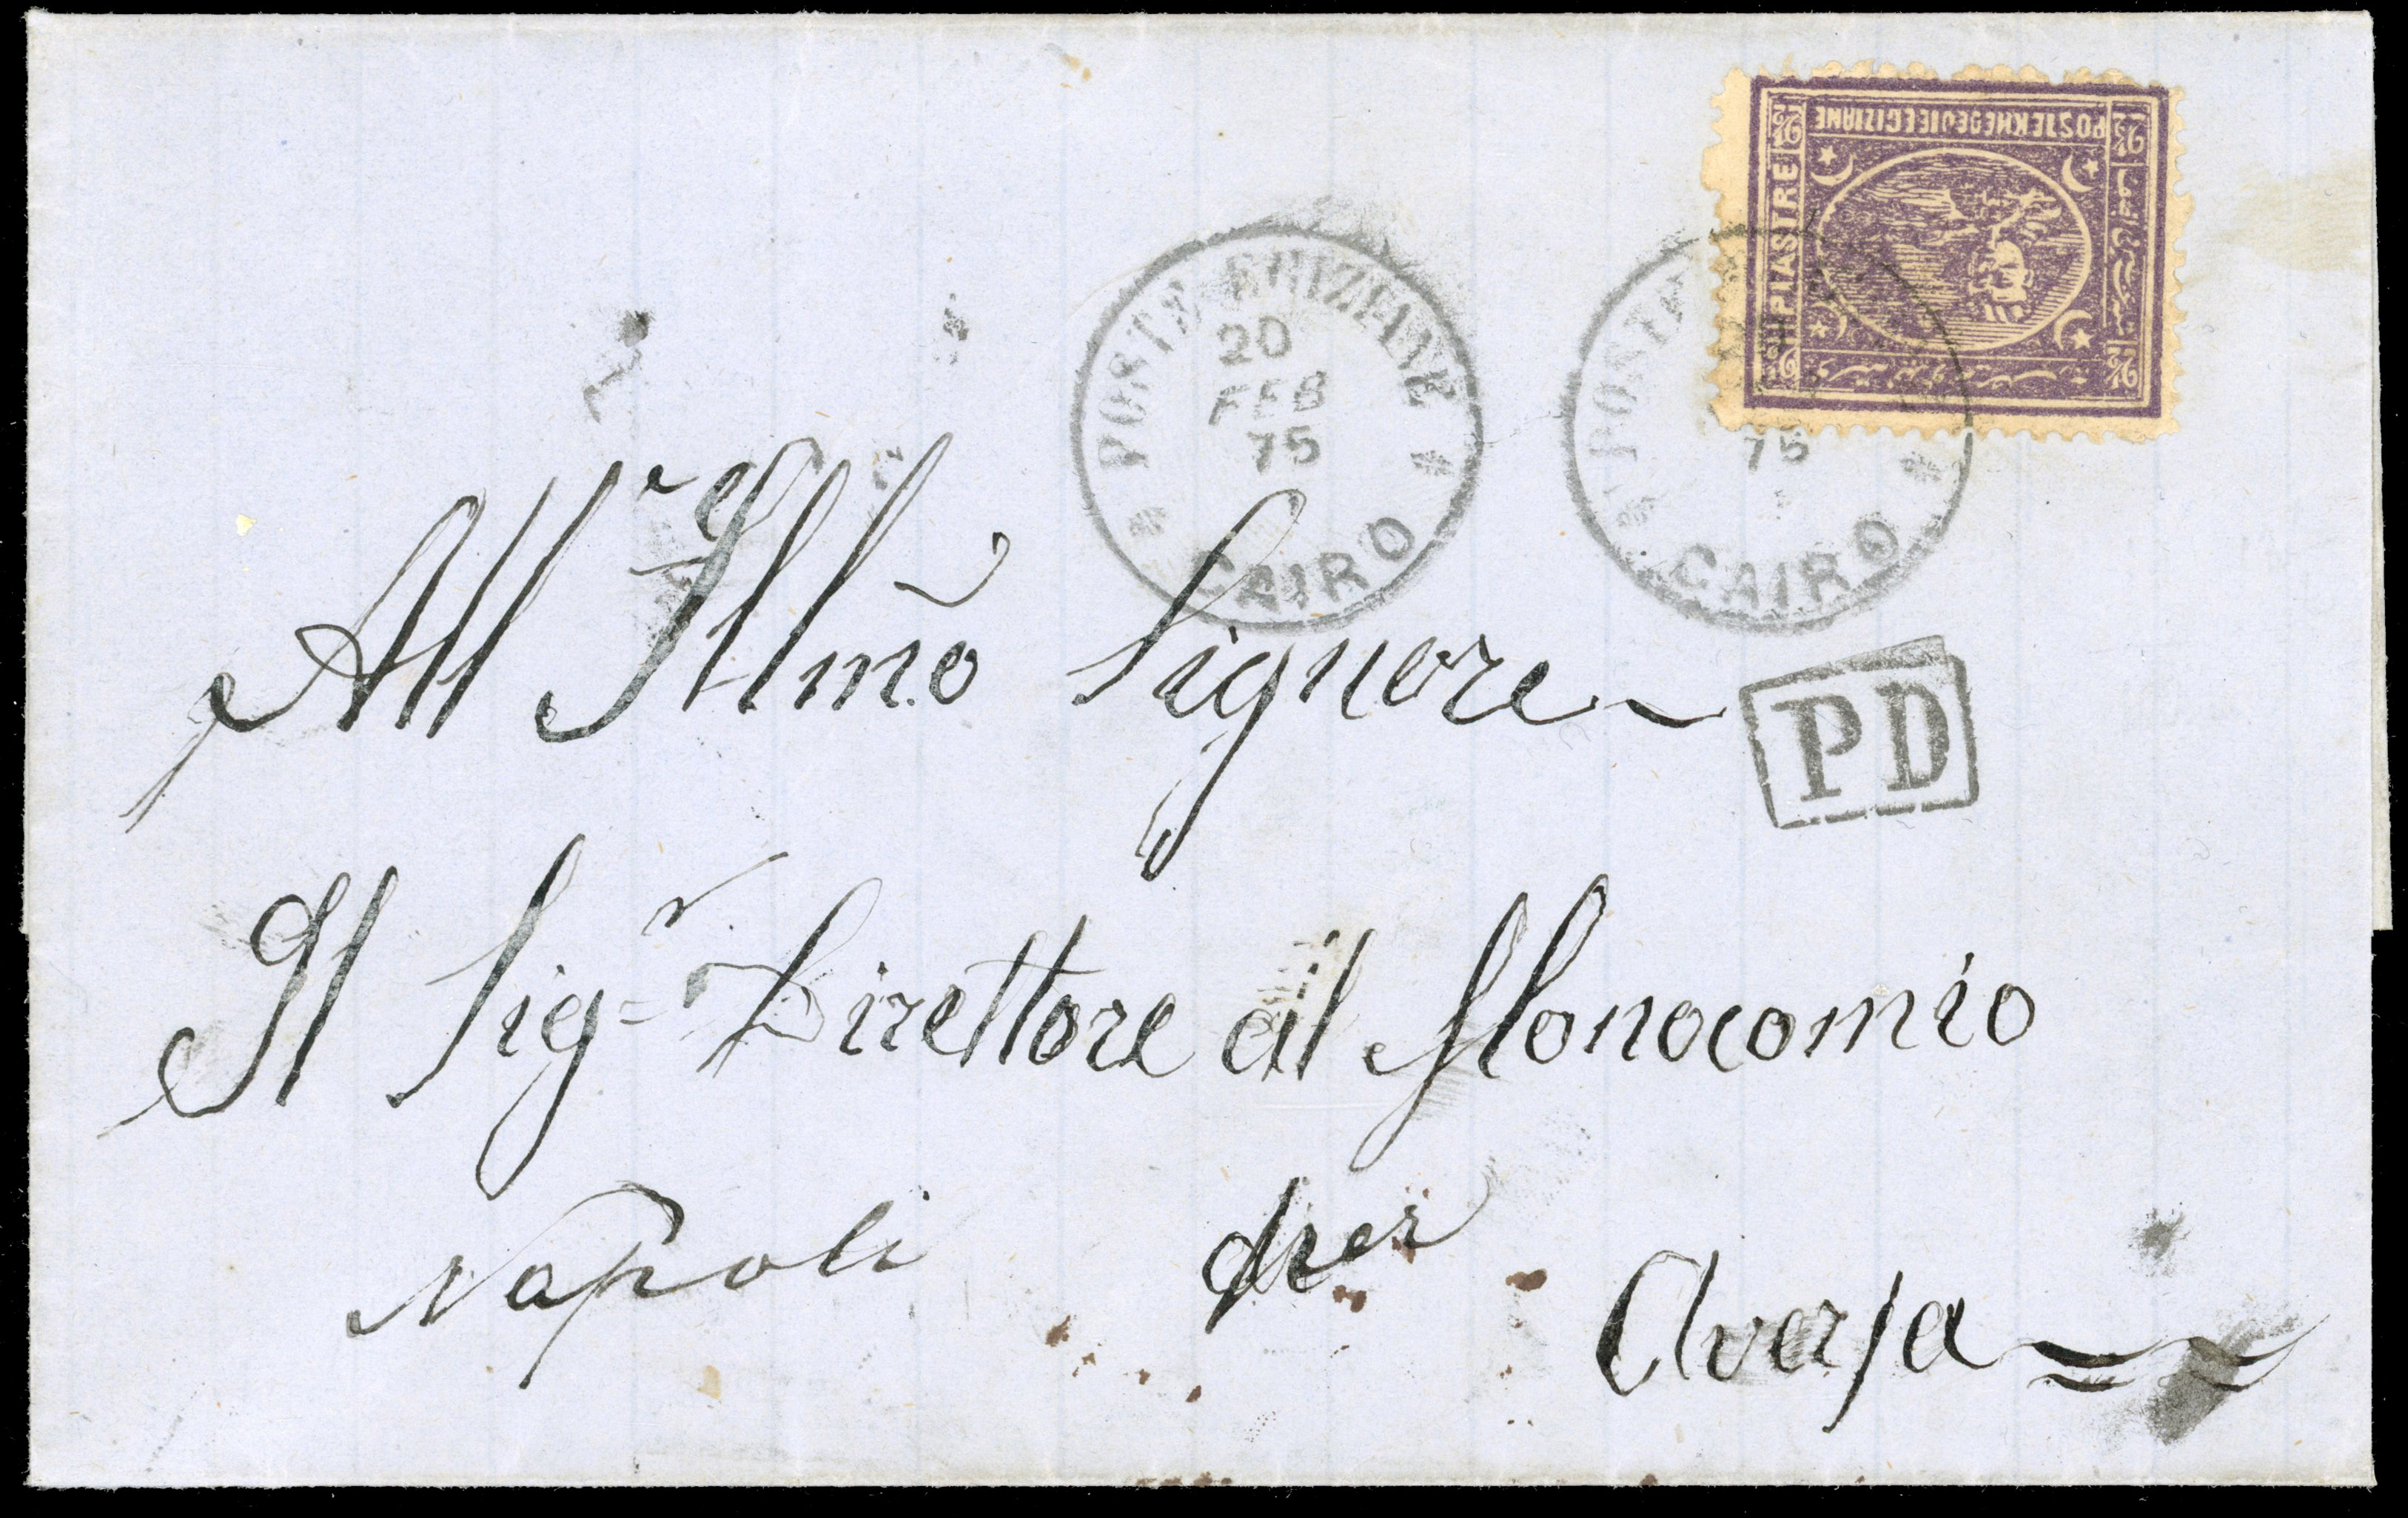 POSTE KHEDEUIE EGIZIANE
PIASTRE
2½
2½
2½
2½
POSTE EGIZIANE
20
FEB
75
CAIRO
POSTE
75
CAIRO
PD
All' Illmo Signore
Il Sig.r Direttore al Monocomio
Napoli per
Aversa